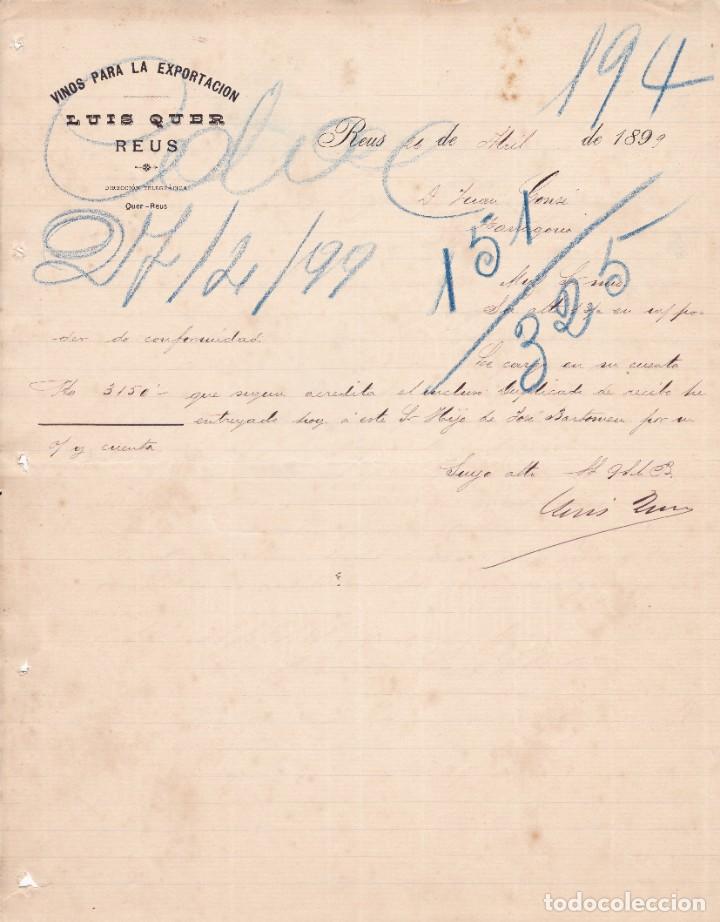 VINOS PARA LA EXPORTACION
LUIS QUER
REUS
DIRECCIÓN TELEGRÁFICA
Quer-Reus
194
Reus 26 de Abril de 1899
27/4/99
D. Juan
Tarragona
151/325
Muy Sr mio
der de conformidad.
Le cargo en su cuenta
3150'- que segun acredita el incluso duplicado de recibo he
entregado hoy á este Sr Hijo de José Bartomeu por
o/ y cuenta
Suyo atto
Luis Quer
todocoleccion